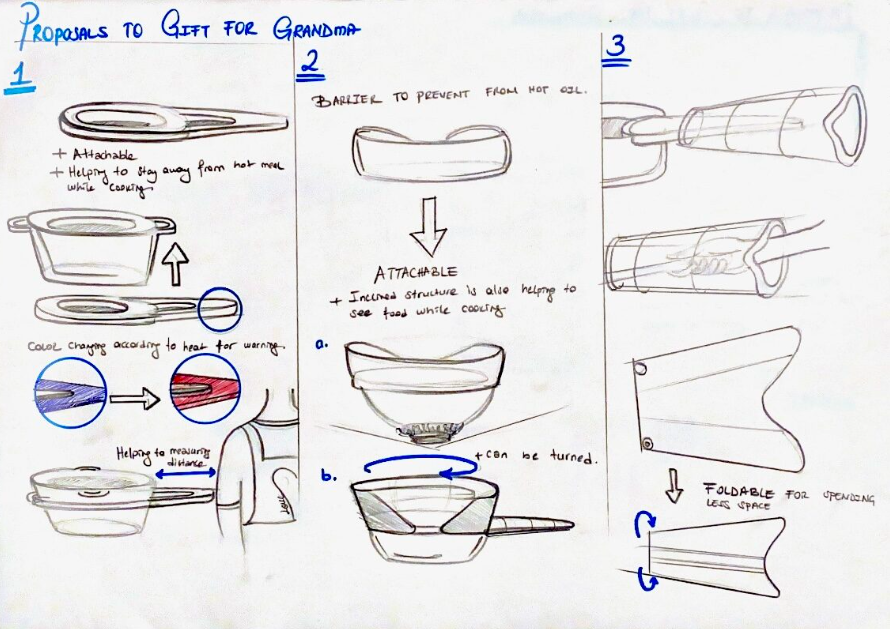 PROPOSALS TO GIFT FOR GRANDMA
1
+ Attachable
+ Helping to stay away from hot meal
while cooking.
Color changing according to heat for warning.
Helping to measuring
distance
2
BARRIER TO PREVENT FROM HOT OIL.
ATTACHABLE
+ Inclined structure is also helping to
see food while cooking
a.
b.
+ can be turned.
3
FOLDABLE FOR SPENDING
LESS SPACE